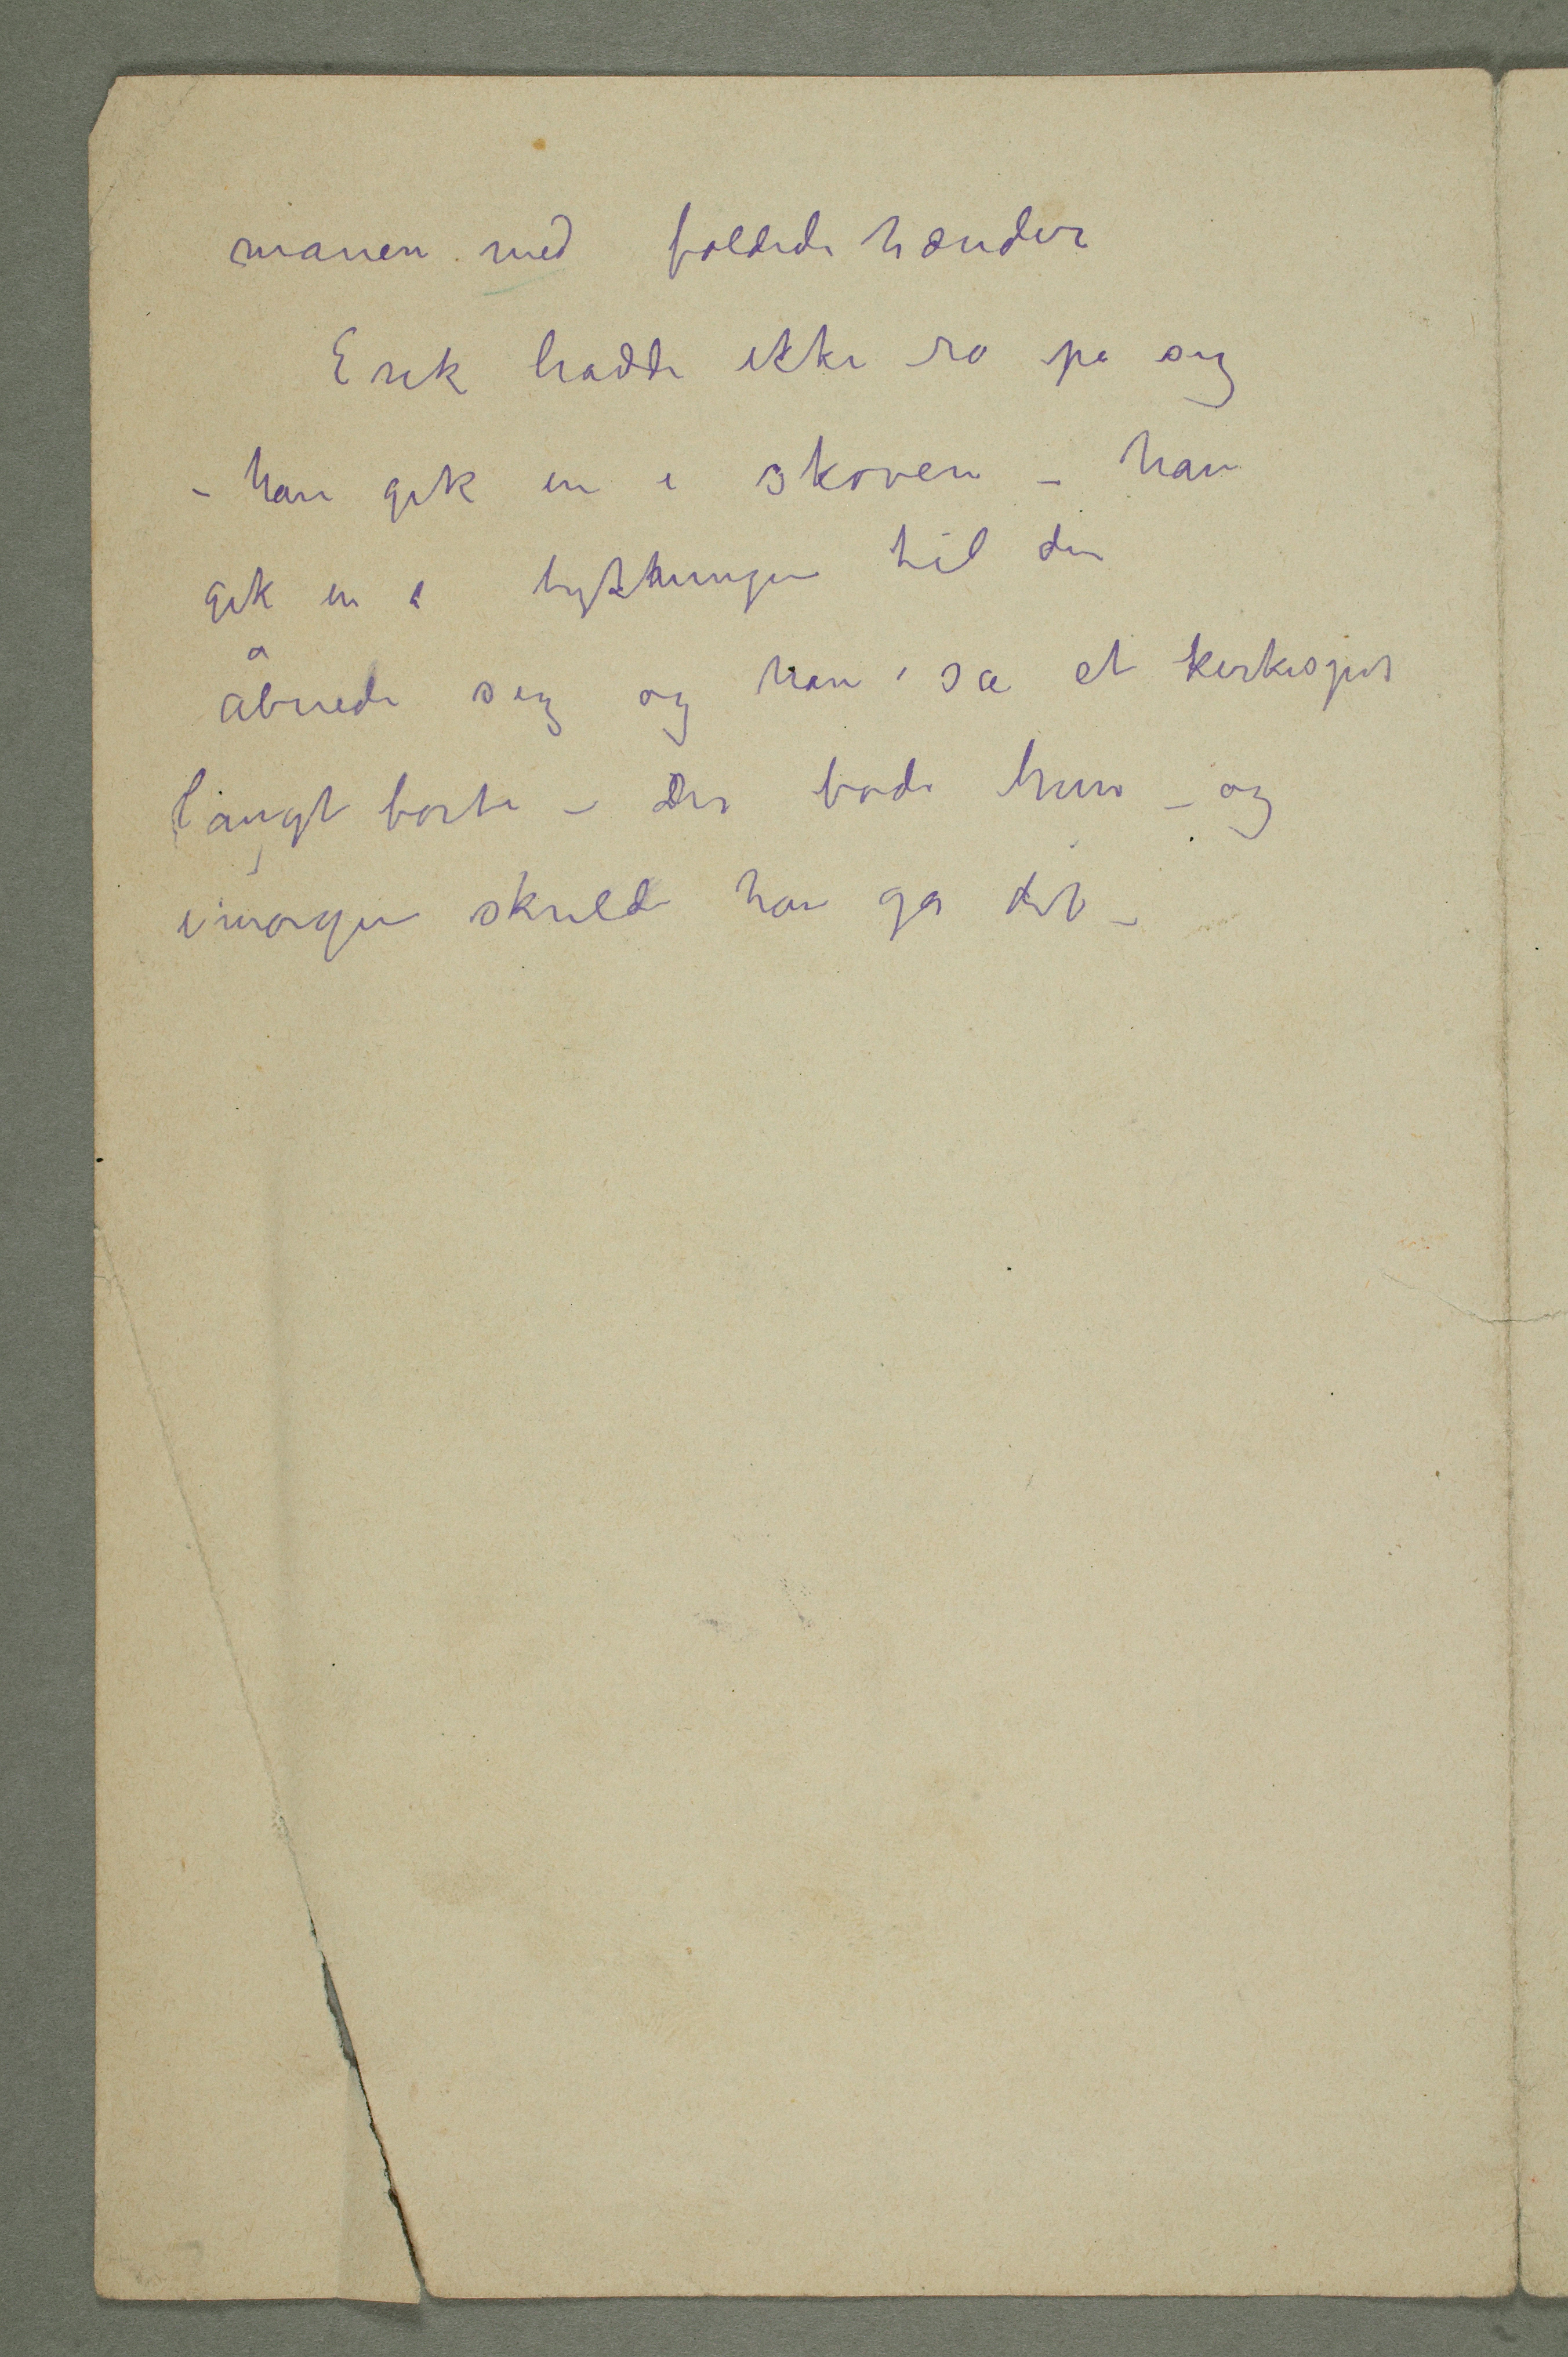 manen med foldede hænder
Erik hadde ikke ro på sig
– han gik in i skoven – han
gik in i tykkningen til den
åbnede sig og han så et kirkespir
langt borte – Der bode hun – og
imorgen skulde han gå dit –